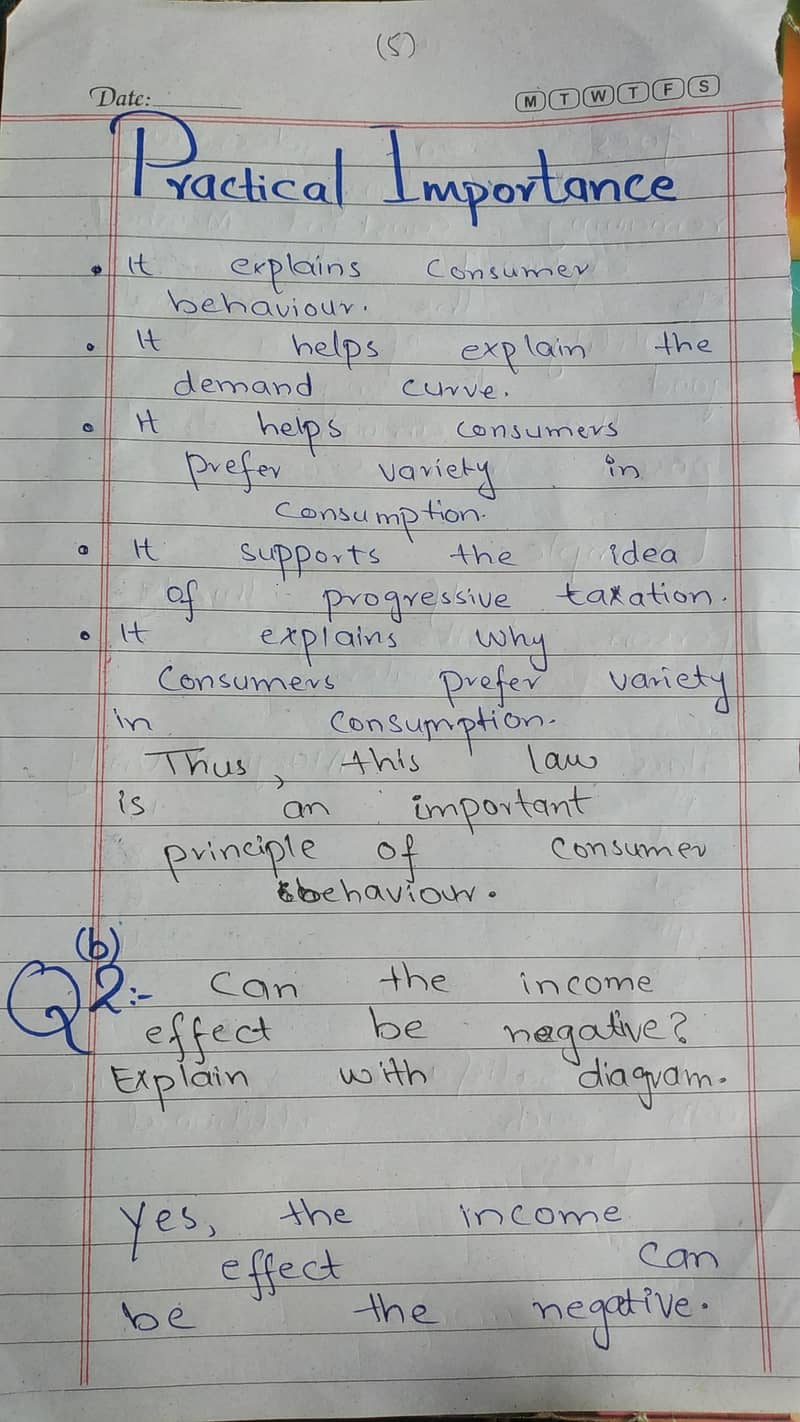 (5)
Date:
M T W T F S
Practical Importance
• It explains Consumer
behaviour.
• It helps explain the
demand curve.
• It helps consumers
prefer variety in
Consumption.
• It supports the idea
of progressive taxation.
• It explains why
Consumers prefer variety
in Consumption.
Thus, this law
is an important
principle of Consumer
behaviour.
(b)
Q2:- Can the income
effect be negative?
Explain with diagram.
Yes, the income
effect can
be the negative.